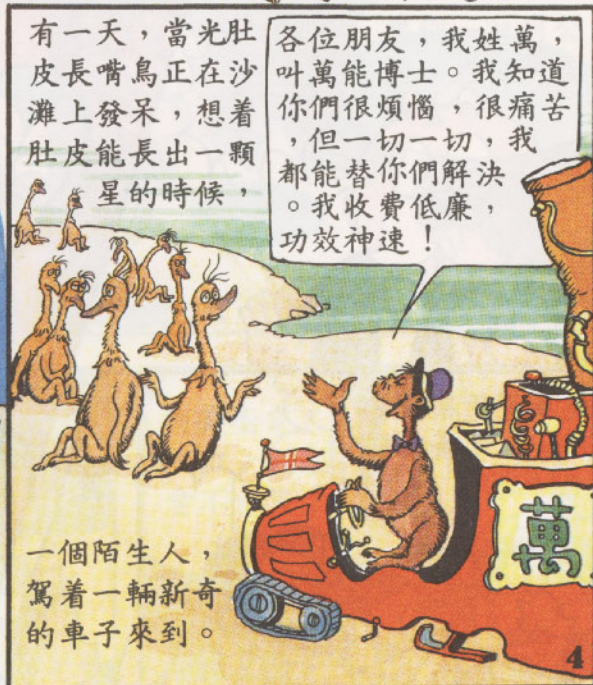 有一天，當光肚
皮長嘴鳥正在沙
灘上發呆，想着
肚皮能長出一顆
星的時候，
各位朋友，我姓萬，
叫萬能博士。我知道
你們很煩惱，很痛苦
，但一切一切，我
都能替你們解決
。我收費低廉，
功效神速！
萬
一個陌生人，
駕着一輛新奇
的車子來到。
4